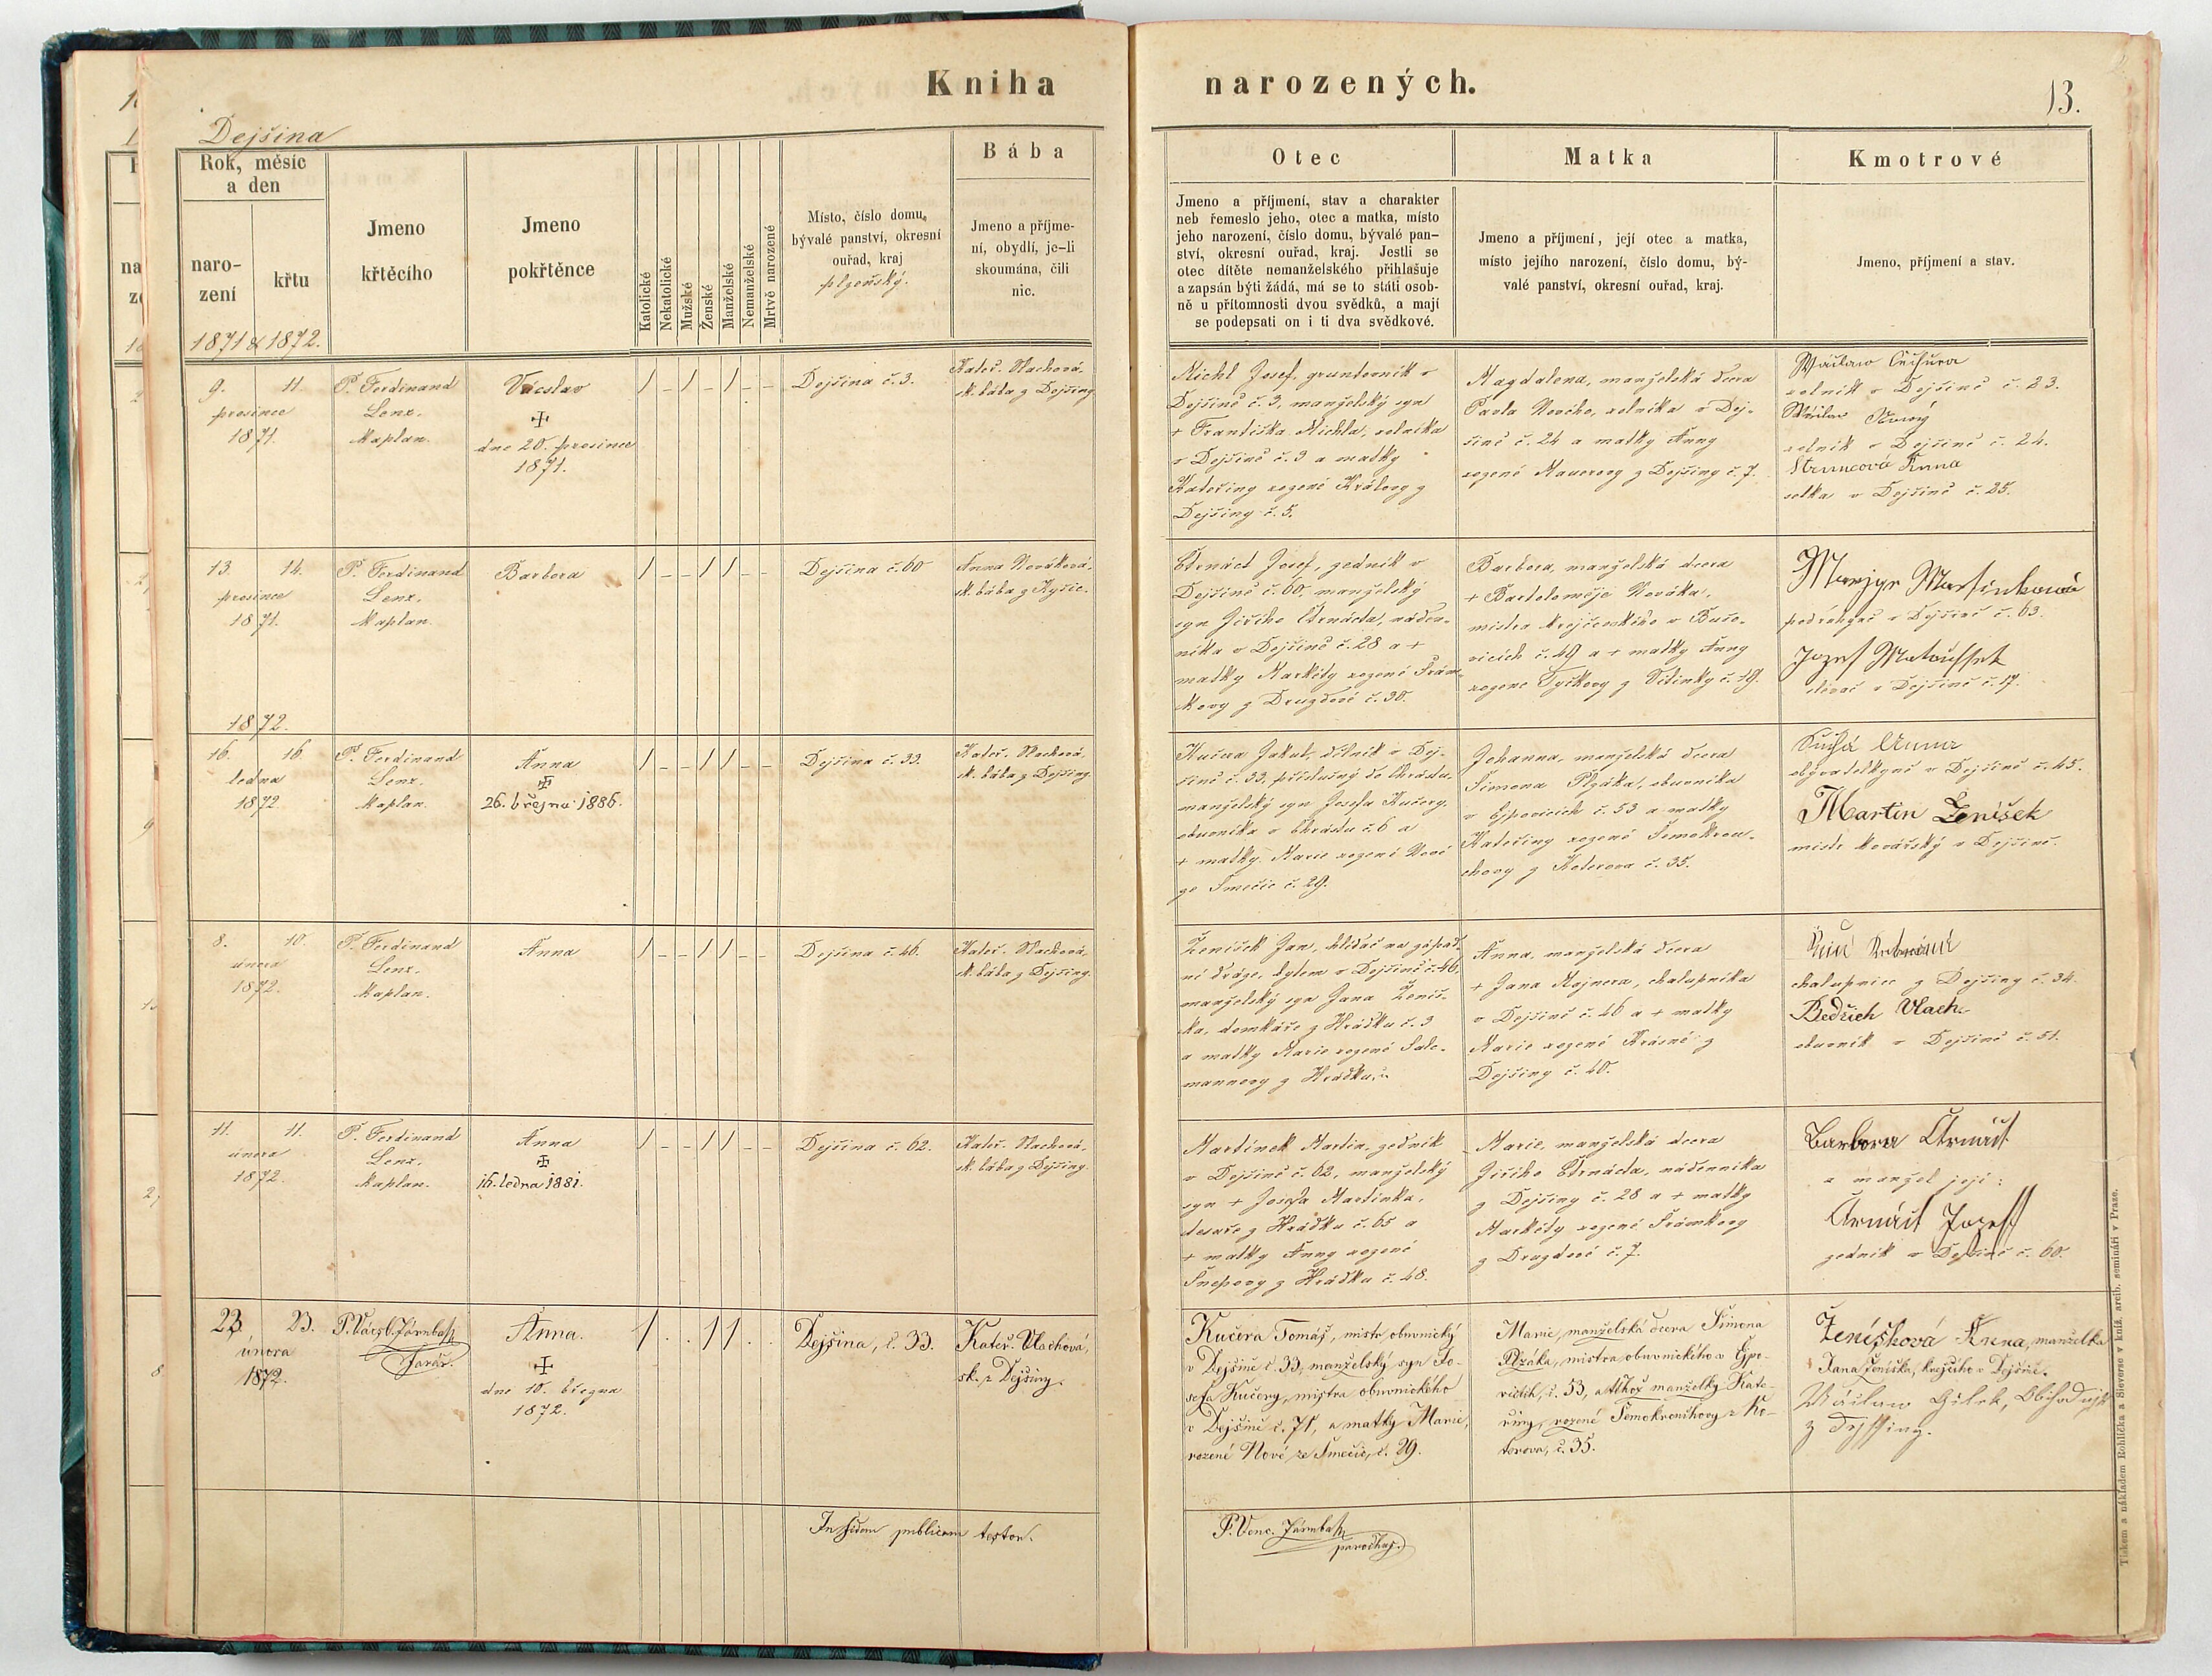 Kniha
narozených.
13.
Dejšina
Rok, měsíc
a den
naro-
zení
křtu
1871 & 1872.
Jmeno
křtěcího
Jmeno
pokřtěnce
Katolické
Nekatolické
Mužské
Ženské
Manželské
Nemanželské
Mrtvě narozené
Místo, číslo domu,
bývalé panství, okresní
ouřad, kraj
plzeňský.
Bába
Jmeno a příjme-
ní, obydlí, je-li
skoumána, čili
nic.
Otec
Jmeno a příjmení, stav a charakter
neb řemeslo jeho, otec a matka, místo
jeho narození, číslo domu, bývalé pan-
ství, okresní ouřad, kraj. Jestli se
otec dítěte nemanželského přihlašuje
a zapsán býti žádá, má se to státi osob-
ně u přítomnosti dvou svědků, a mají
se podepsati on i ti dva svědkové.
Matka
Jmeno a příjmení, její otec a matka,
místo jejího narození, číslo domu, bý-
valé panství, okresní ouřad, kraj.
Kmotrové
Jmeno, příjmení a stav.
9. 11.
prosince
1871.
P. Ferdinand
Lenz.
Kaplan.
Vácslav
dne 20. prosince
1871.
1 – 1 – 1 – –
Dejšina č. 3.
Kateř. Vlachová.
zk. bába z Dejšiny
Michl Josef, gruntovník v
Dejšině č. 3, manželský syn
+ Františka Michla, rolníka
v Dejšině č. 3 a matky
Kateřiny rozené Královy z
Dejšiny č. 5.
Magdalena, manželská dcera
Pavla Nového, rolníka v Dej-
šině č. 24 a matky Anny
rozené Mauerovy z Dejšiny č. 7.
Václaw Čechura
rolník v Dejšině č. 23.
Václav Nowý
rolník v Dejšině č. 24.
Anna
selka v Dejšině č. 25.
13. 14.
prosince
1871.
P. Ferdinand
Lenz.
Kaplan.
Barbora
1 – – 1 1 – –
Dejšina č. 60
Anna Nováková,
zk. bába z Kyšic.
Čtrnáct Josef, zedník v
Dejšině č. 60, manželský
syn Jiřího Čtrnácta, náden-
níka v Dejšině č. 28 a +
matky Markéty rozené Frám-
kovy z Druzdové č. 30.
Barbora, manželská dcera
+ Bartoloměje Nováka,
mistra krejčovského v Buše-
vicích č. 49 a + matky Anny
rozené Tyčkovy z Vitinky č. 19.
Martinkowá
v Dejšině č. 63.
Jozef Matousset
v Dejšině č. 17.
1872.
16. 16.
ledna
1872.
P. Ferdinand
Lenz.
Kaplan.
Anna
26. březnu 1886.
1 – – 1 1 – –
Dejšina č. 33.
Kateř. Vlachová,
zk. bába z Dejšiny.
Kučera Jakub, dělník v Dej-
šině č. 33, příslušný do Chrástu,
manželský syn Josefa Kučery,
obuvníka v Chrástu č. 6 a
+ matky Marie rozené Nové
ze Smečic č. 29.
Johanna, manželská dcera
Šimona Plzáka, obuvníka
v Ejpovicích č. 53 a matky
Kateřiny rozené Semokrou-
chovy z Koterova č. 35.
Suchá Anna
obyvatelkyně v Dejšině č. 45.
Martin Ženíšek
mistr kovářský v Dejšině.
8. 10.
února
1872.
P. Ferdinand
Lenz.
Kaplan.
Anna
1 – – 1 1 – –
Dejšina č. 46.
Kateř. Vlachová,
zk. bába z Dejšiny.
Ženíšek Jan, hlídač na západ-
ní dráze, bytem v Dejšině č. 46,
manželský syn Jana Ženíš-
ka, domkáře z Hrádku č. 3
a matky Marie rozené Salc-
mannovy z Hrádku.
Anna, manželská dcera
+ Jana Majnera, chalupníka
v Dejšině č. 46 a + matky
Marie rozené Krásné z
Dejšiny č. 40.
chalupnice z Dejšiny č. 34.
Bedřich Vlach.
obuvník v Dejšině č. 51.
11. 11.
února
1872.
P. Ferdinand
Lenz.
Kaplan.
Anna
16. ledna 1881.
1 – – 1 1 – –
Dejšina č. 62.
Kateř. Vlachová,
zk. bába z Dejšiny.
Martínek Martin, zedník
v Dejšině č. 62, manželský
syn + Josefa Martinka,
tesaře z Hrádku č. 65 a
+ matky Anny rozené
Šnepovy z Hrádku č. 48.
Marie, manželská dcera
Jiřího Čtrnácta, nádenníka
z Dejšiny č. 28 a + matky
Markéty rozené Frámkovy
z Druzdové č. 7.
Barbora Čtrnáct
a manžel její:
Čtrnáct Jozef
zedník v Dejšině č. 60.
23. 23.
února
1872.
P. Václ. Járnbach
Farář.
Anna.
dne 10. března
1872.
1 . . 1 1 . .
Dejšina, č. 33.
Kateř. Vlachová,
zk. z Dejšiny.
Kučera Tomáš, mistr obuvnický
v Dejšině č. 33, manželský syn Jo-
sefa Kučery, mistra obuvnického
v Dejšině č. 71, a matky Marie,
rozené Nové ze Smečic, č. 29.
Marie, manželská dcera Šimona
Plzáka, mistra obuvnického v Ejpo-
vicích, č. 53, a téhož manželky Kate-
řiny, rozené Semokrouchovy z Ko-
terova, č. 35.
Ženíšková Anna, manželka
Jana Ženíška, krejčího v Dejšině.
Václaw
z
In fidem publicam testor.
P. Venc. Járnbach
parochus.
Tiskem a nákladem Rohlíčka a Sieverse v kníž. arcib. semináři v Praze.